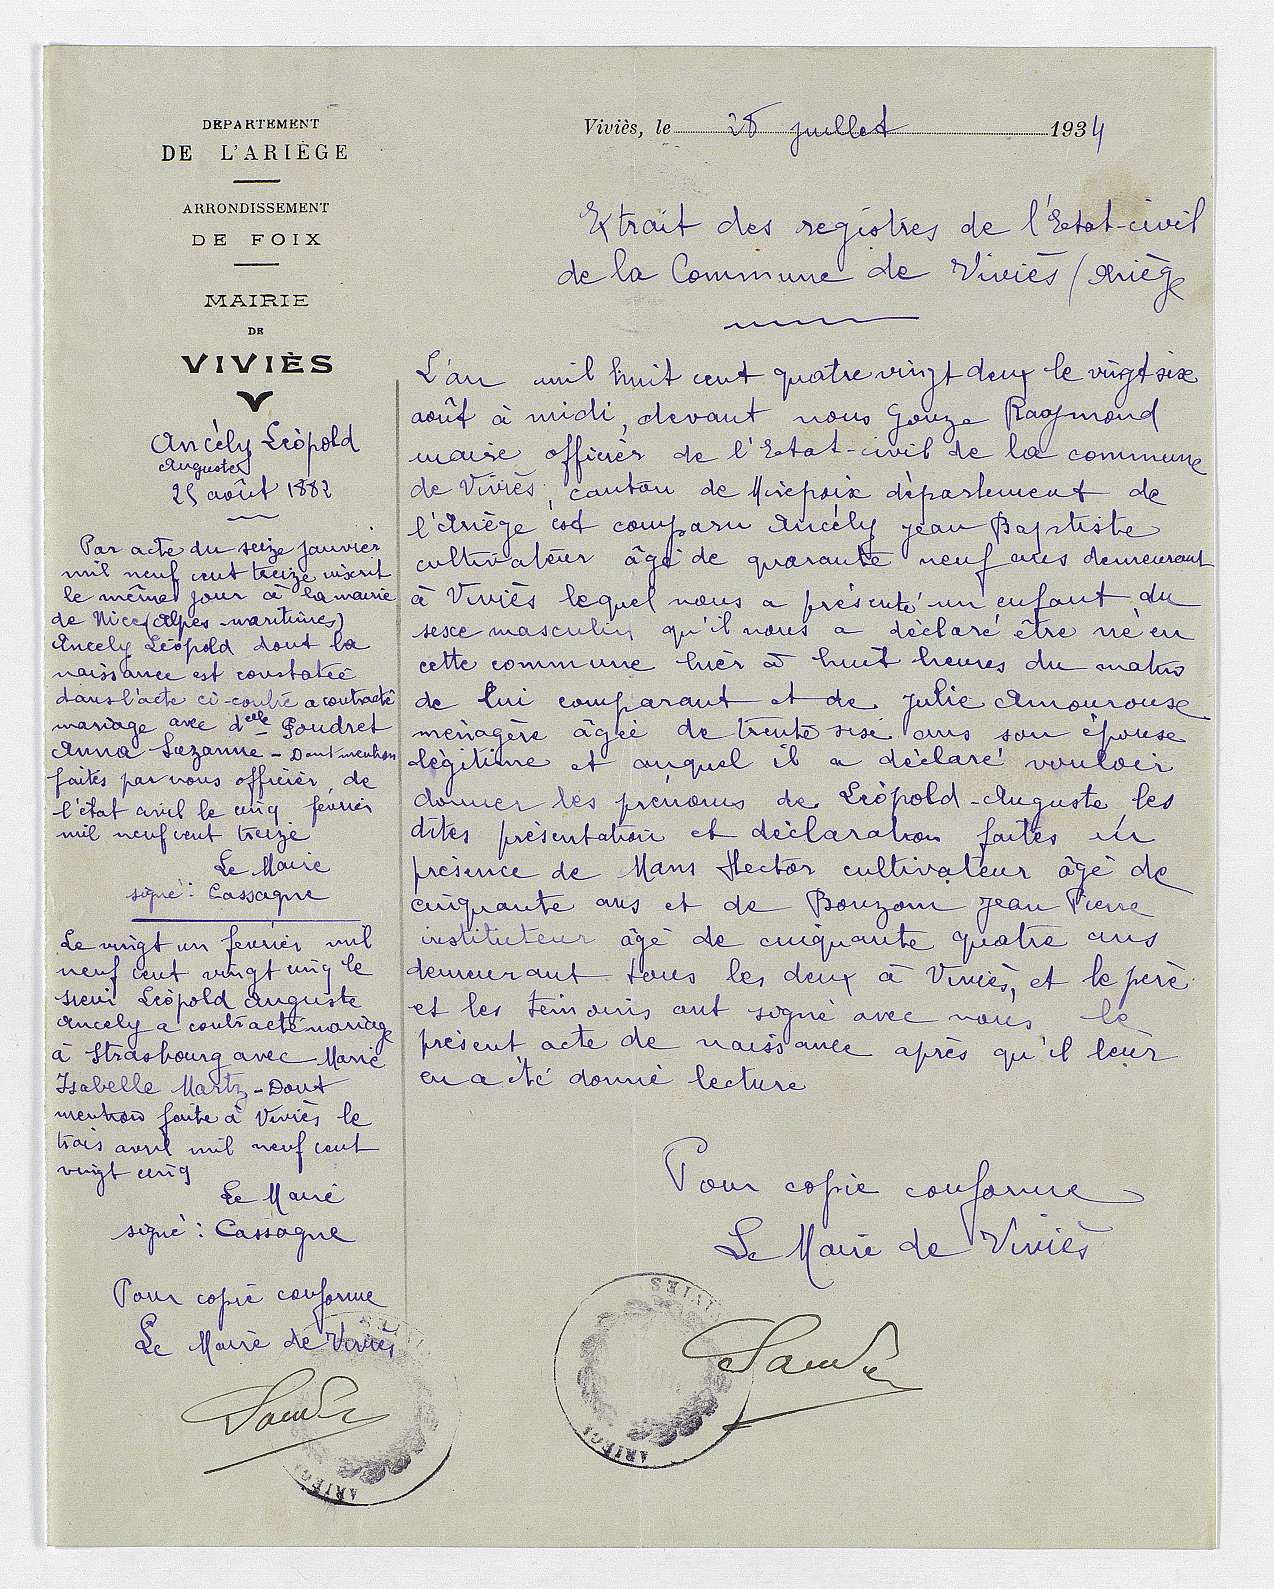 DEPARTEMENT
DE L'ARIÈGE
ARRONDISSEMENT
DE FOIX
MAIRIE
DE
VIVIÈS
Ancély Léopold
Auguste
25 août 1882
Par acte du seize janvier
mil neuf cent treize inscrit
le même jour à la mairie
de Nice (Alpes-maritimes)
Ancely Léopold dont la
naissance est constatée
dans l'acte ci-contre a contracté
mariage avec delle Poudret
Anna Suzanne - Dont mention
faites par nous officier de
l'état civil le cinq février
mil neuf cent treize
Le Maire
signé : Cassagne
Le vingt un février mil
neuf cent vingt cinq le
sieur Léopold Auguste
Ancely a contracté mariage
à Strasbourg avec Marie
Isabelle Martz - Dont
mention faite à Viviès le
trois avril mil neuf cent
vingt cinq
Le Maire
signé : Cassagne
Pour copie conforme
Le Maire de Viviès
Viviès, le 28 juillet 1934
Extrait des registres de l'Etat-civil
de la Commune de Viviès (Ariège
L'an mil huit cent quatre vingt deux le vingt six
août à midi, devant nous Gouze Raymond
maire officier de l'Etat-civil de la commune
de Viviès, canton de Mirepoix département de
l'Ariège est comparu Ancély Jean Baptiste
cultivateur âgé de quarante neuf ans demeurant
à Viviès lequel nous a présenté un enfant du
sexe masculin qu'il nous a déclaré être né en
cette commune hier à huit heures du matin
de lui comparant et de Julie Amourouse
ménagère âgée de trente six ans son épouse
légitime et auquel il a déclaré vouloir
donner les prénoms de Léopold-Auguste les
dites présentation et déclaration faites en
présence de Mans Hector cultivateur âgé de
cinquante ans et de Bouzom Jean Pierre
instituteur âgé de cinquante quatre ans
demeurant tous les deux à Viviès, et le père
et les témoins ont signé avec nous le
présent acte de naissance après qu'il leur
en a été donné lecture
Pour copie conforme
Le Maire de Viviès
VIVIÈS
ARIEGE
ARIEGE